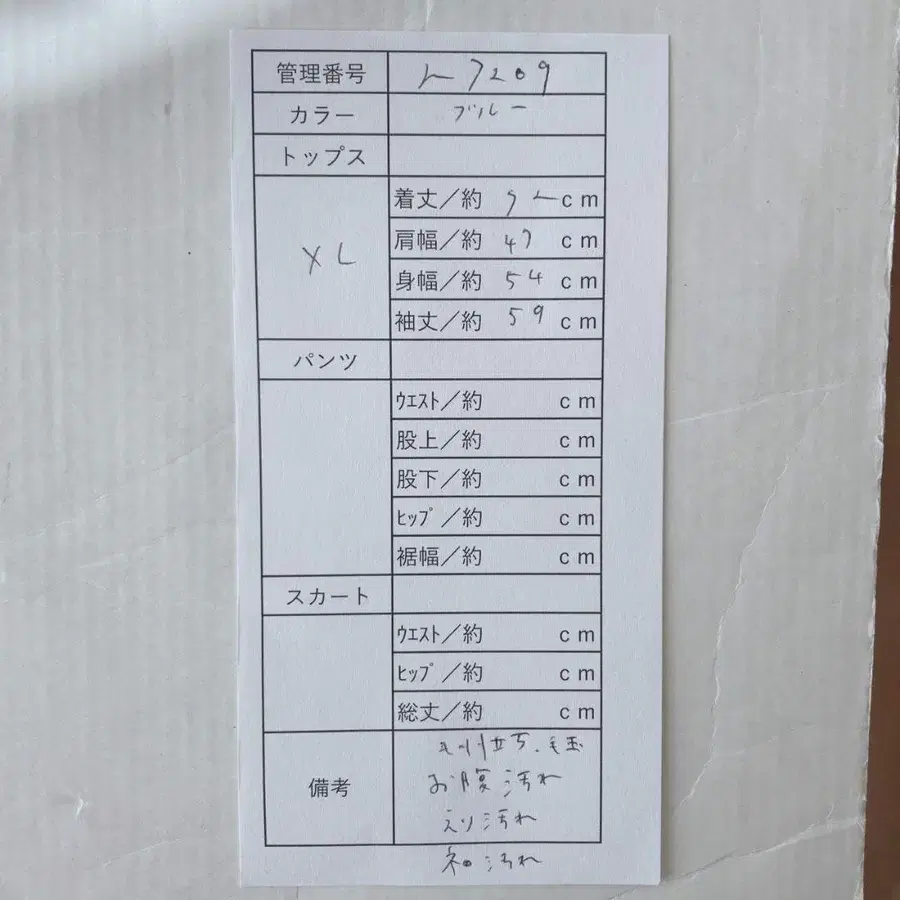 管理番号
カラー ブルー
トップス
XL
着丈／約 cm
肩幅／約 47 cm
身幅／約 54 cm
袖丈／約 59 cm
パンツ
ｳｴｽﾄ／約 cm
股上／約 cm
股下／約 cm
ﾋｯﾌﾟ／約 cm
裾幅／約 cm
スカート
ｳｴｽﾄ／約 cm
ﾋｯﾌﾟ／約 cm
総丈／約 cm
備考
毛羽立ち、毛玉
お腹汚れ
えり汚れ
袖汚れ